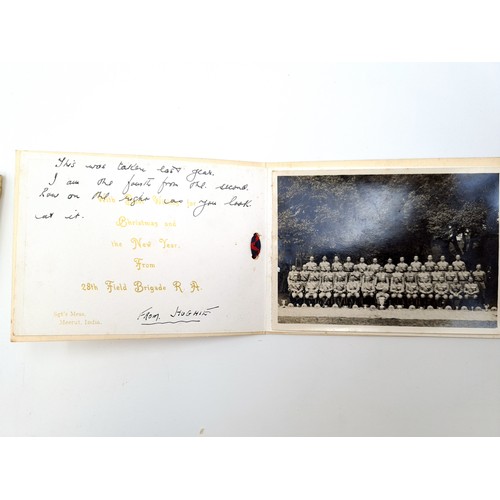 This was taken last year.
I am the fourth from the second
Row on the right as you look
at it.
With Wishes for
Christmas and
the New Year.
From
28th Field Brigade R. A.
Sgt's Mess,
Meerut, India.
FROM HUGHIE